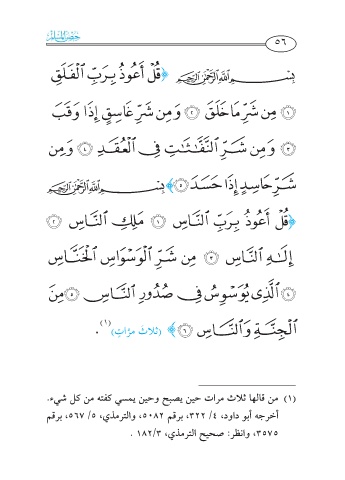 ٥٦ حصن المسلم
بِسْمِ اللَّهِ الرَّحْمَٰنِ الرَّحِيمِ ﴿قُلْ أَعُوذُ بِرَبِّ الْفَلَقِ
١ مِن شَرِّ مَا خَلَقَ ٢ وَمِن شَرِّ غَاسِقٍ إِذَا وَقَبَ
٣ وَمِن شَرِّ النَّفَّاثَاتِ فِي الْعُقَدِ ٤ وَمِن
شَرِّ حَاسِدٍ إِذَا حَسَدَ ٥﴾ بِسْمِ اللَّهِ الرَّحْمَٰنِ الرَّحِيمِ
﴿قُلْ أَعُوذُ بِرَبِّ النَّاسِ ١ مَلِكِ النَّاسِ ٢
إِلَٰهِ النَّاسِ ٣ مِن شَرِّ الْوَسْوَاسِ الْخَنَّاسِ
٤ الَّذِي يُوَسْوِسُ فِي صُدُورِ النَّاسِ ٥ مِنَ
الْجِنَّةِ وَالنَّاسِ ٦﴾ (ثلاثَ مرَّاتٍ)(١).
(١) من قالها ثلاث مرات حين يصبح وحين يمسي كفته من كل شيء.
أخرجه أبو داود، ٤/ ٣٢٢، برقم ٥٠٨٢، والترمذي، ٥/ ٥٦٧، برقم
٣٥٧٥، وانظر: صحيح الترمذي، ٣/ ١٨٢.